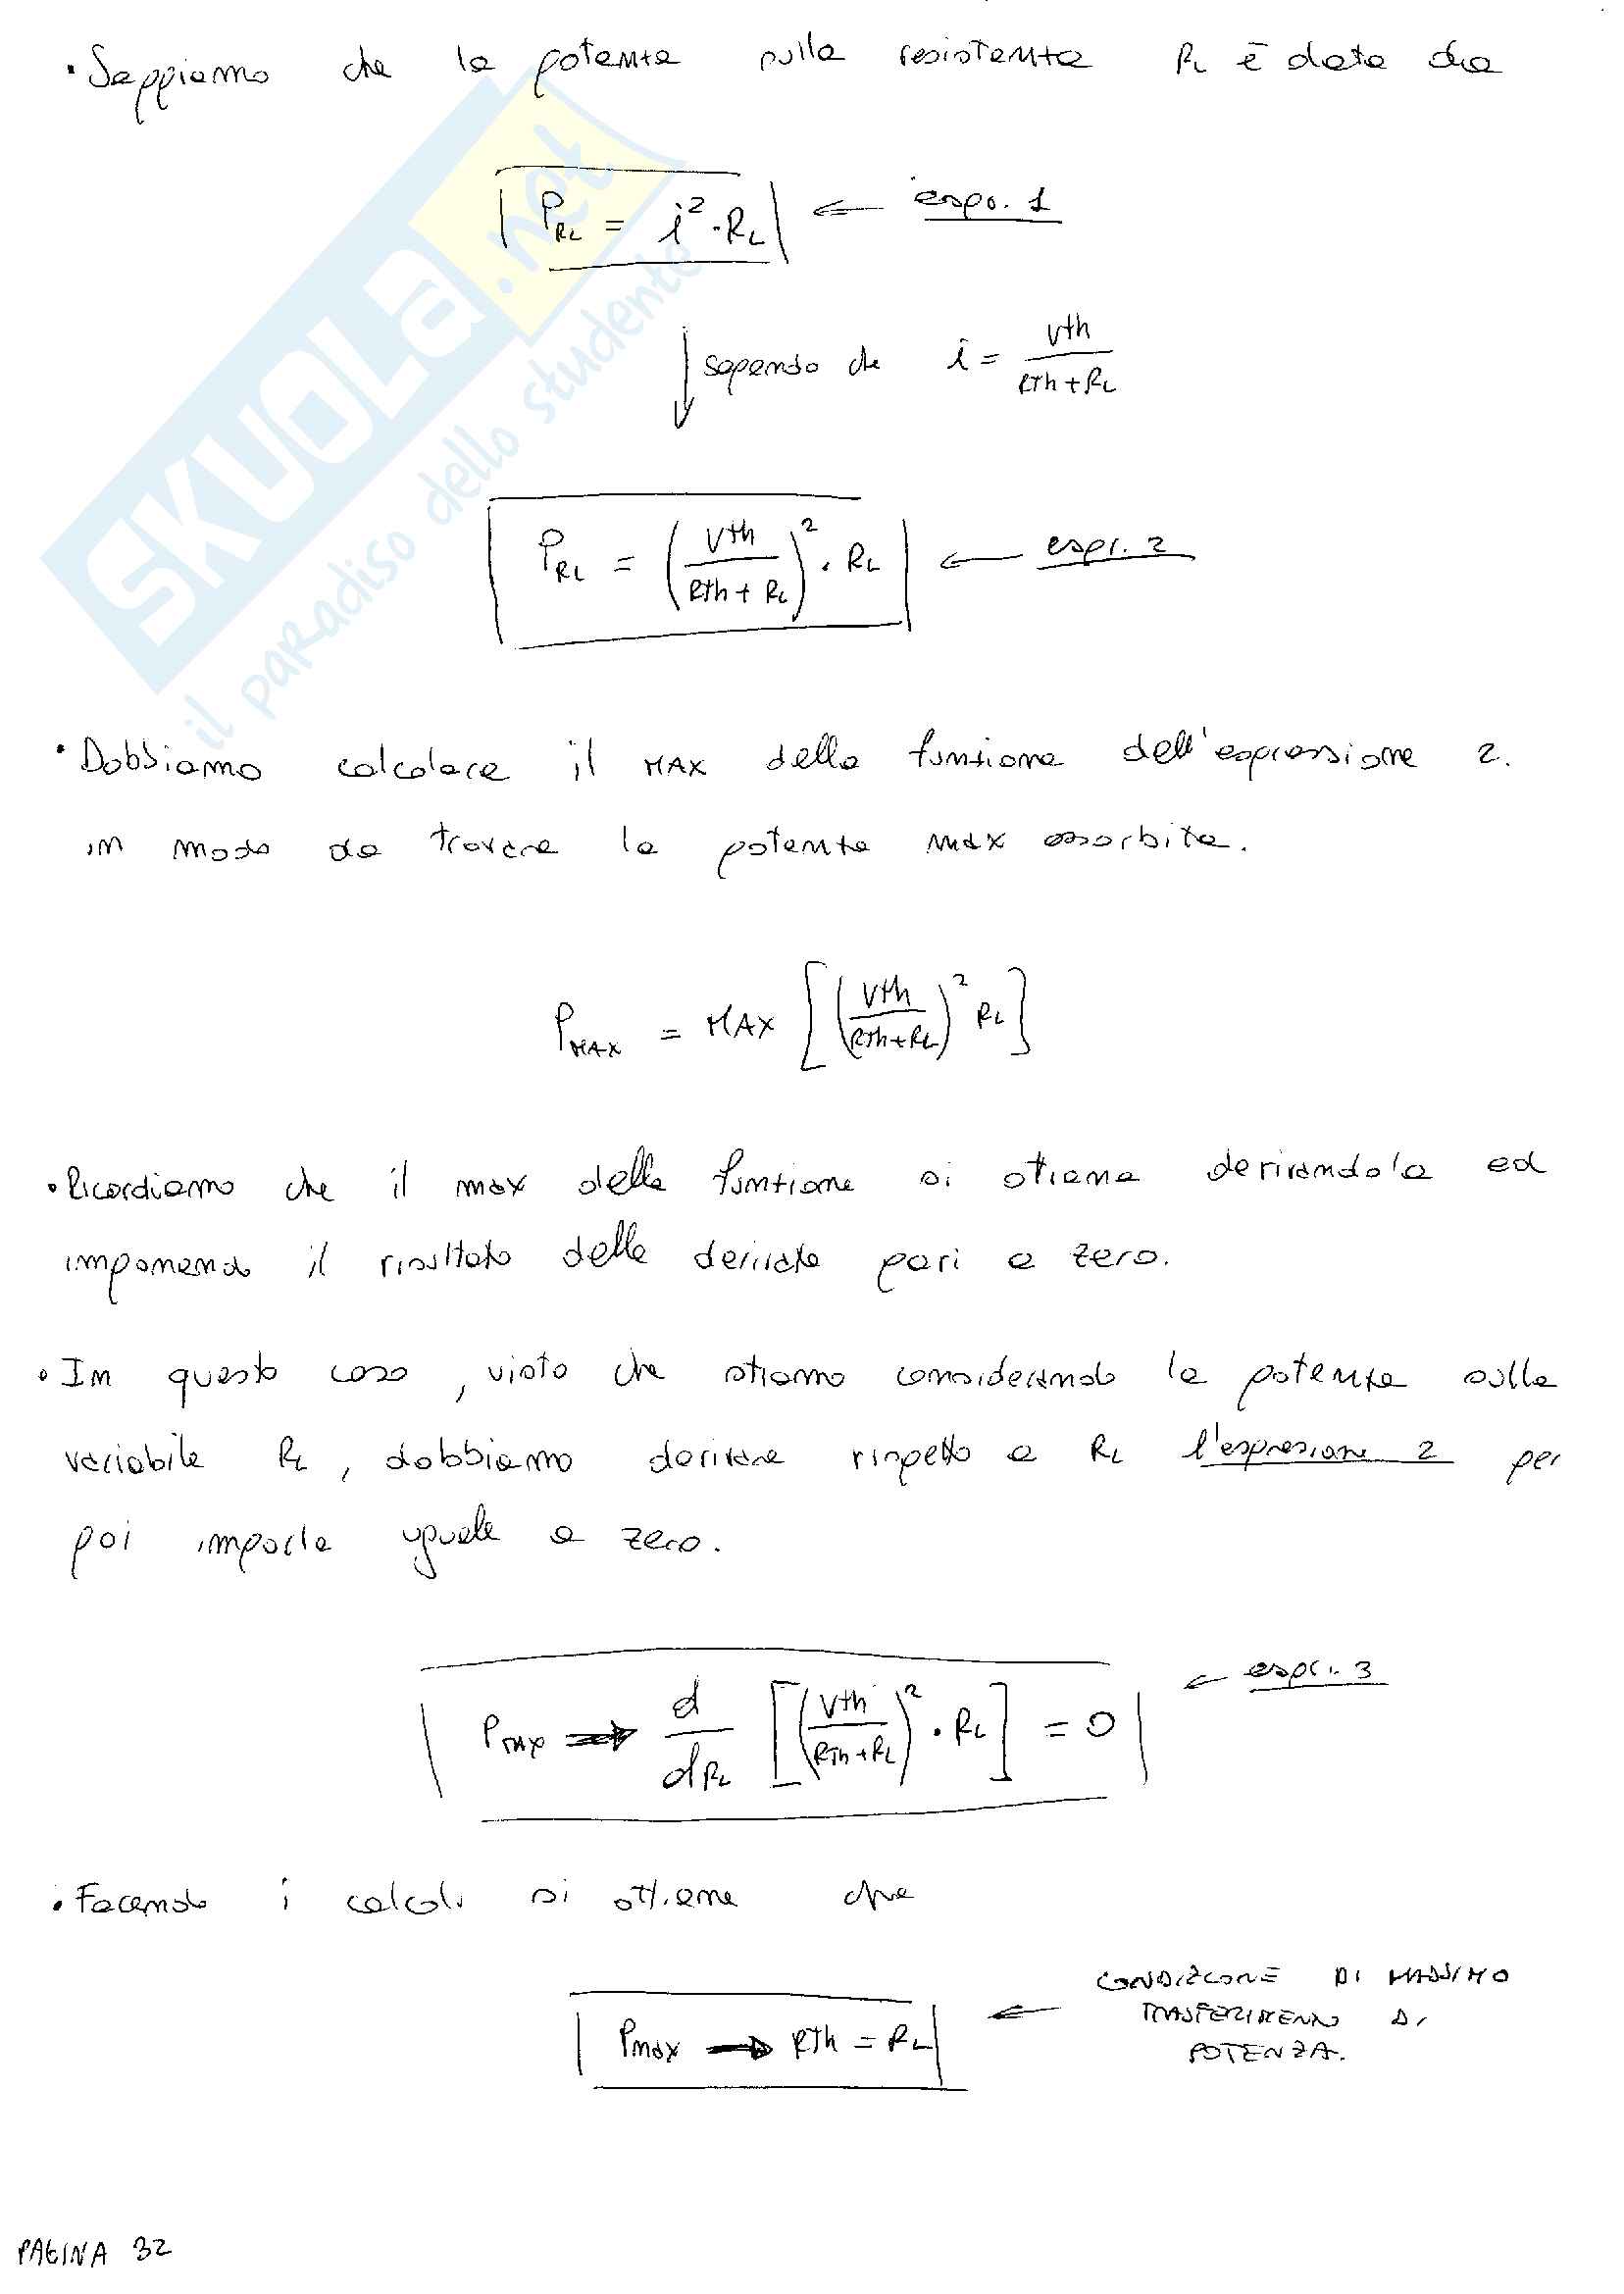 • Sappiamo che la potenza sulla resistenza RL è data da
PRL = i² · RL ← espr. 1
↓ sapendo che i = Vth / (Rth + RL)
PRL = (Vth / (Rth + RL))² · RL ← espr. 2
• Dobbiamo calcolare il MAX della funzione dell'espressione 2.
in modo da trovare la potenza max assorbita.
PMAX = MAX [(Vth / (Rth + RL))² RL]
• Ricordiamo che il max della funzione si otiene derivandola ed
imponendo il risultato della derivata pari a zero.
• In questo caso, visto che stiamo considerando la potenza sulla
variabile RL, dobbiamo derivare rispetto a RL l'espressione 2 per
poi imporla uguale a zero.
PMAX → d/dRL [(Vth / (RTh + RL))² · RL] = 0 ← espr. 3
• Facendo i calcoli si ottiene che
Pmax → RTh = RL ← CONDIZIONE DI MASSIMO
TRASFERIMENTO DI
POTENZA.
PAGINA 32
SKUOLA.net
il paradiso dello studente